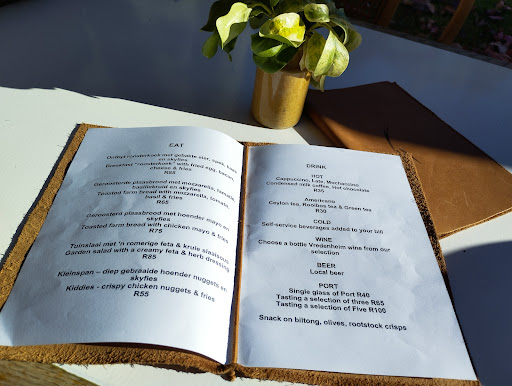 EAT
Ontbyt ronderkoek met gebakte eier, spek, kaas
en skyfies
Breakfast "ronderkoek" with fried egg, bacon,
cheese & fries
R85
Geroosterde plaasbrood met mozzarella, tomato,
basiliekruid en skyfies
Toasted farm bread with mozzarella, tomato,
basil & fries
R75
Geroosterd plaasbrood met hoender mayo en
skyfies
Toasted farm bread with chicken mayo & fries
R75
Tuinslaai met 'n romerige feta & kruie slaaisous
Garden salad with a creamy feta & herb dressing
R85
Kleinspan – diep gebraaide hoender nuggets en
skyfies
Kiddies - crispy chicken nuggets & fries
R55
DRINK
HOT
Cappuccino, Late, Moccacino
Condensed milk coffee, Hot chocolate
R35
Americano
Ceylon tea, Rooibos tea & Green tea
R30
COLD
Self-service beverages added to your bill
WINE
Choose a bottle Vredenheim wine from our
selection
BEER
Local beer
PORT
Single glass of Port R40
Tasting a selection of three R65
Tasting a selection of Five R100
Snack on biltong, olives, rootstock crisps